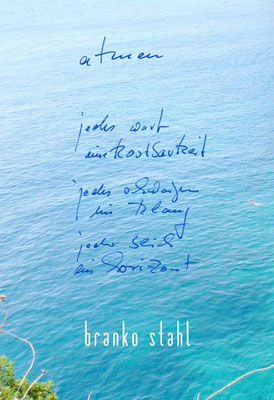 atmen
jedes wort
eine kostbarkeit
jedes schweigen
ein klang
jeder blick
ein horizont
branko stahl